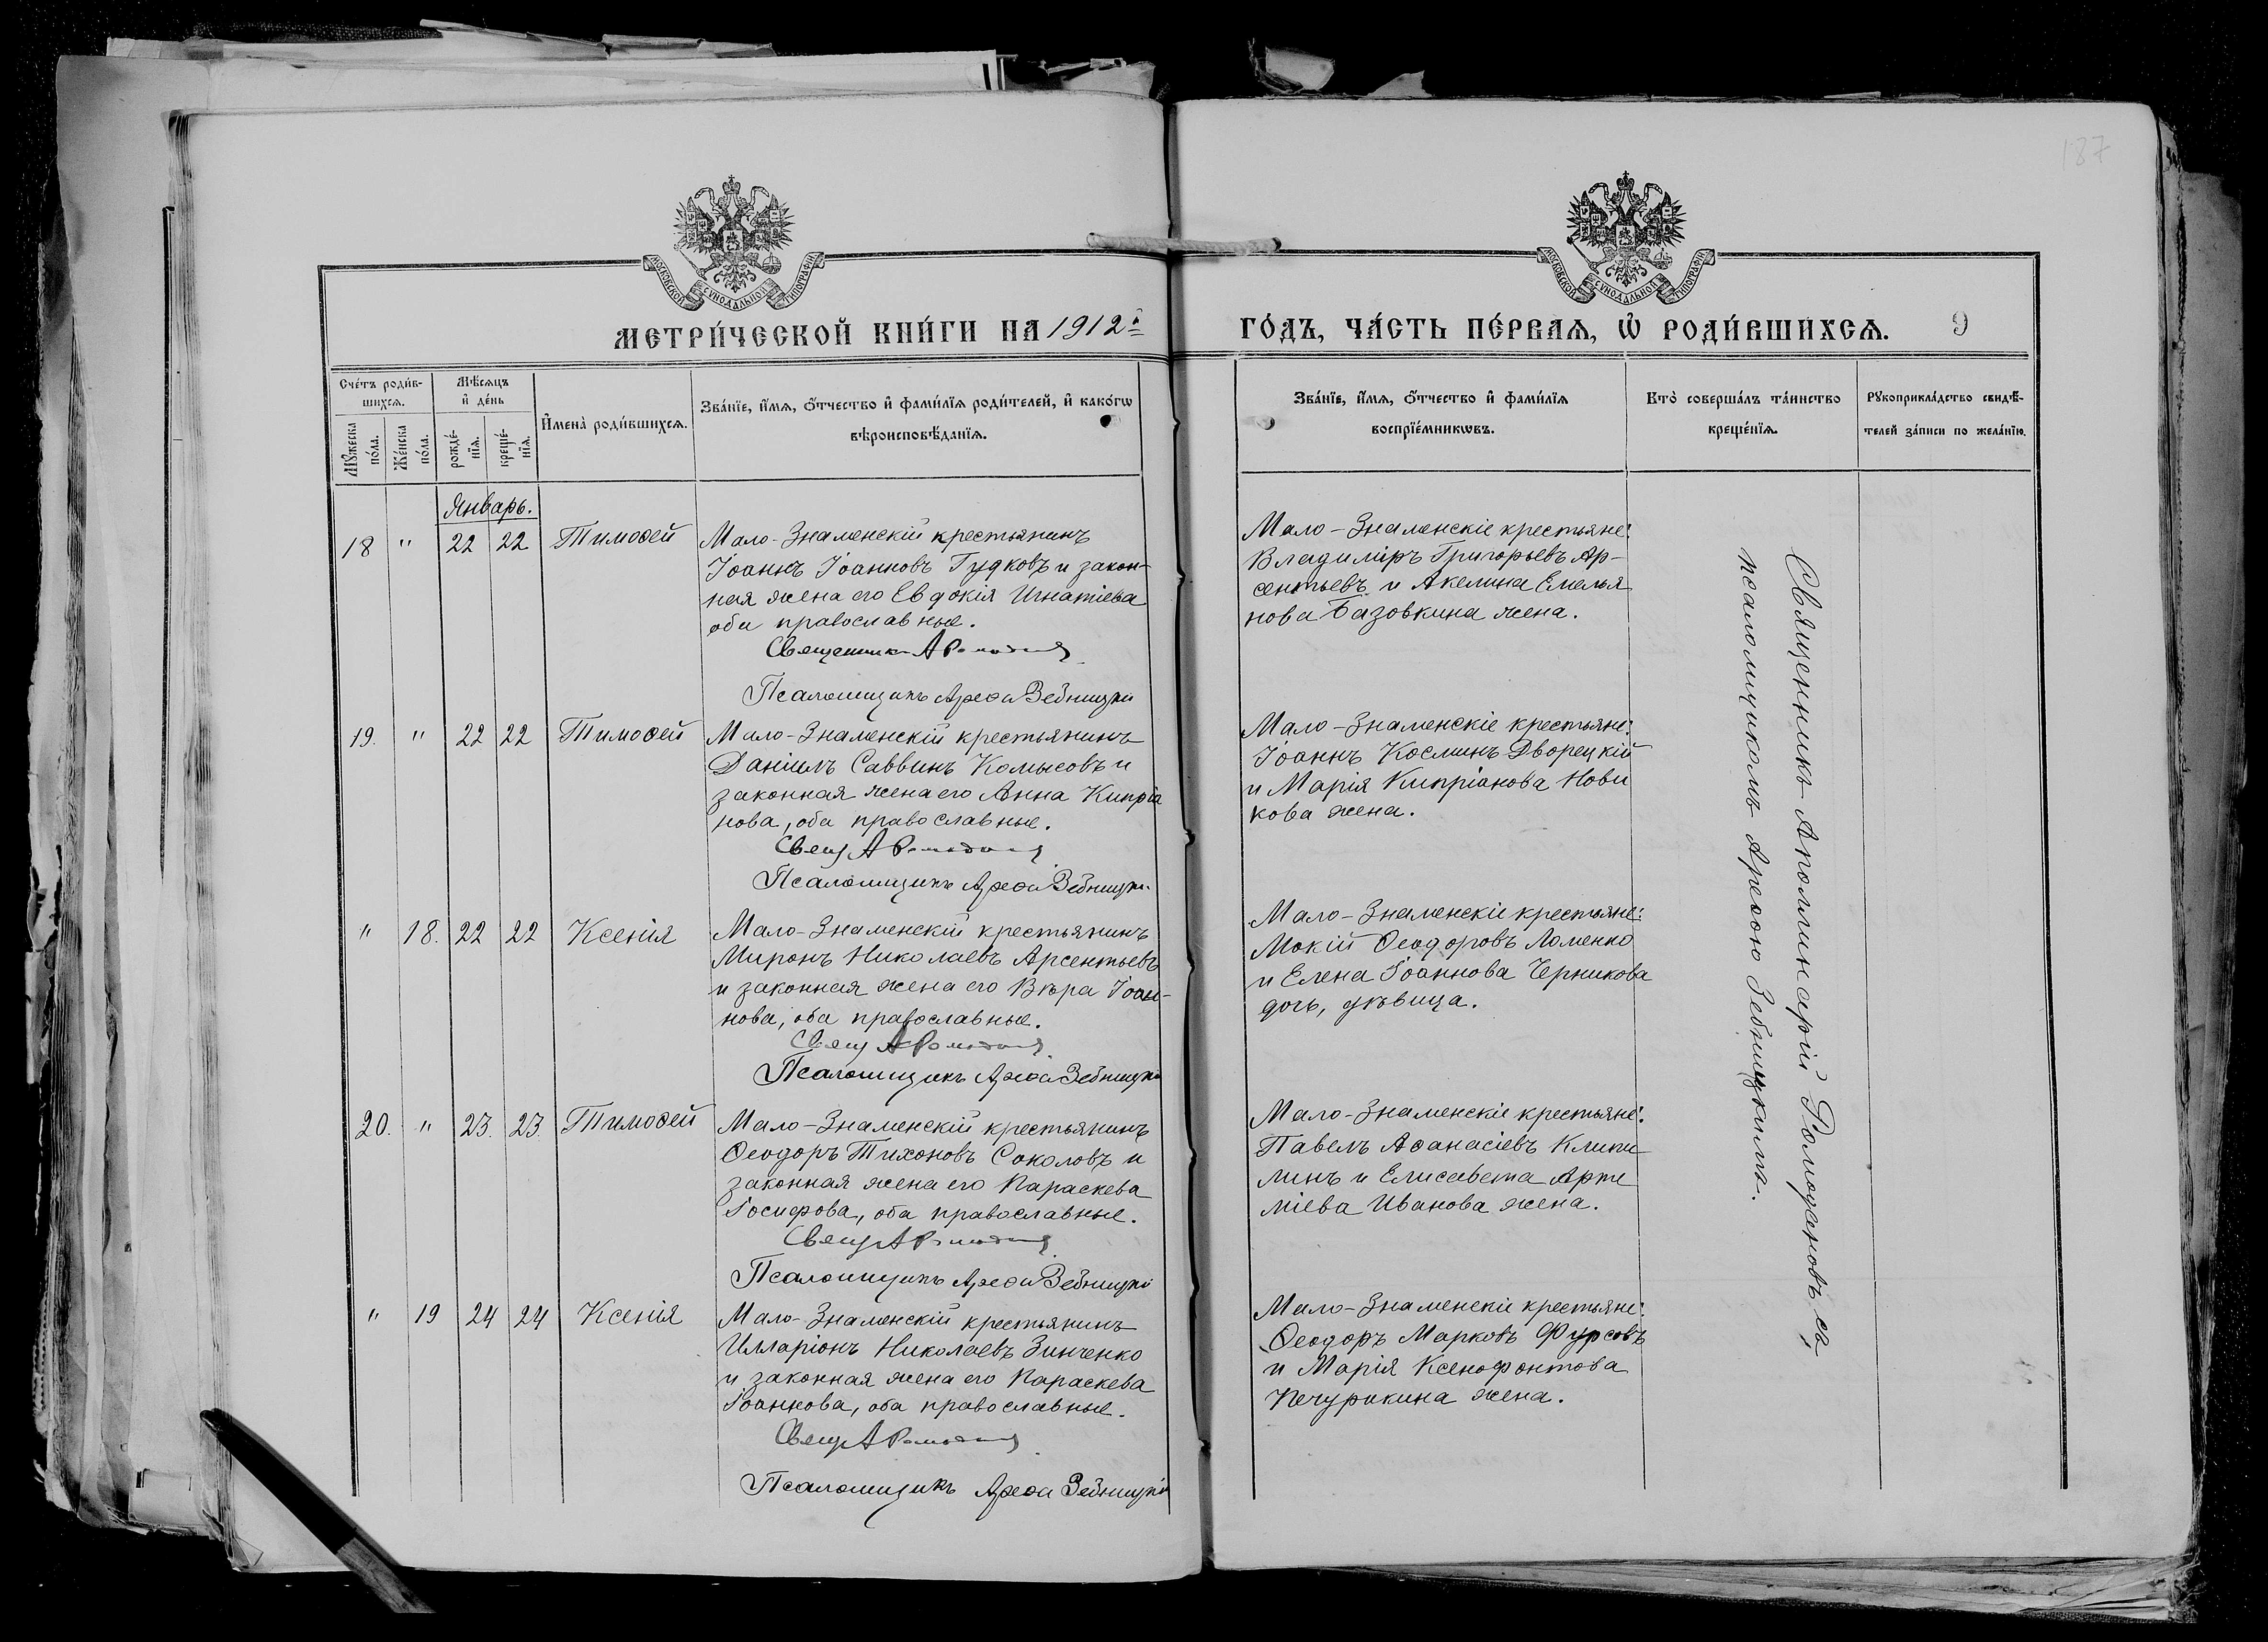 187
МОСКОВСКОЙ СѴНОДАЛЬНОЙ ТИПОГРАФІИ
МОСКОВСКОЙ СѴНОДАЛЬНОЙ ТИПОГРАФІИ
МЕТРИ́ЧЕСКОЙ КНИ́ГИ НА 1912й
ГО́ДЪ, ЧА́СТЬ ПЕ́РВАѦ, Ѽ РОДИ́ВШИХСѦ. 9
Сче́тъ роди́в-
шихсѧ.
Мꙋжеска по́ла.
Же́нска по́ла.
Мѣ́сѧцъ
и҆ де́нь
рожде́-
нїѧ.
креще́-
нїѧ.
И҆мена̀ роди́вшихсѧ.
Зва́нїе, и҆́мѧ, ѻ҆́тчество и҆ фами́лїѧ роди́телей, и҆ како́гѡ
вѣроисповѣ́данїѧ.
Зва́нїе, и҆́мѧ, ѻ҆́тчество и҆ фами́лїѧ
воспрїе́мникѡвъ.
Кто̀ соверша́лъ та́инство
креще́нїѧ.
Рꙋкоприкла́дство свидѣ́-
телей за́писи по жела́нїю.
Январь.
18 " 22 22 Тимоѳей
Мало-Знаменскій крестьянинъ
Іоаннъ Іоанновъ Гудковъ и закон-
ная жена его Евдокія Игнатіева
оба православные.
Священникъ А Ромоданов
Псаломщикъ Ареѳа Зебницкій
Мало-Знаменскіе крестьяне:
Владиміръ Григорьевъ Ар-
сентьевъ и Акелина Емелья
нова Базовкина жена.
19. " 22 22 Тимоѳей
Мало-Знаменскій крестьянинъ
Даніилъ Саввинъ Комысовъ и
законная жена его Анна Кипріа
нова, оба православные.
Свящ А Ромоданов
Псаломщикъ Ареѳа Зебницкій
Мало-Знаменскіе крестьяне:
Іоаннъ Косминъ Дворецкій
и Марія Кипріанова Нови
кова жена.
" 18. 22 22 Ксенія
Мало-Знаменскій крестьянинъ
Миронъ Николаевъ Арсентьевъ
и законная жена его Вѣра Іоан-
нова, оба православные.
Свящ А Ромоданов
Псаломщикъ Ареѳа Зебницкій
Мало-Знаменскіе крестьяне:
Мокій Ѳеодоровъ Ломенко
и Елена Іоаннова Черникова
дочь, дѣвица.
20. " 23. 23. Тимоѳей
Мало-Знаменскій крестьянинъ
Ѳеодоръ Тихоновъ Соколовъ и
законная жена его Параскева
Іосифова, оба православные.
Свящ А Ромоданов
Псаломщикъ Ареѳа Зебницкій
Мало-Знаменскіе крестьяне:
Павелъ Аѳанасіевъ Клипи
линъ и Елисавета Арте
міева Иванова жена.
" 19 24 24 Ксенія
Мало-Знаменскій крестьянинъ
Илларіонъ Николаевъ Зинченко
и законная жена его Параскева
Іоаннова, оба православные.
Свящ А Ромоданов
Псаломщикъ Ареѳа Зебницкій
Мало-Знаменскіе крестьяне:
Ѳеодоръ Марковъ Фурсовъ
и Марія Ксенофонтова
Печурикина жена.
Священникъ Аполлинарій Ромодановъ съ
псаломщикомъ Ареѳою Зебницкимъ.